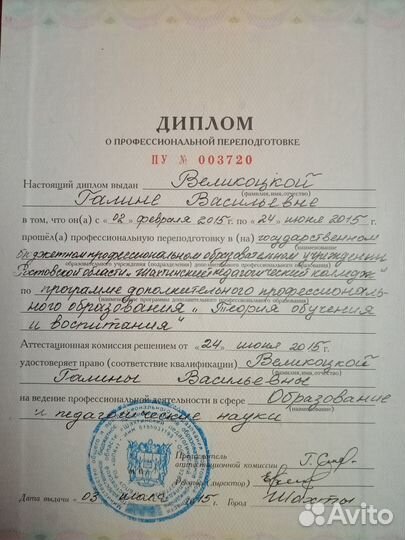 ДИПЛОМ
О ПРОФЕССИОНАЛЬНОЙ ПЕРЕПОДГОТОВКЕ
ПУ № 003720
Настоящий диплом выдан Великоцкой
(фамилия, имя, отчество)
Галине Васильевне
в том, что он(а) с «02» февраля 2015г. по «24» июня 2015г.
прошёл(а) профессиональную переподготовку в (на) государственном
(наименование
бюджетном профессиональном образовательном учреждении
образовательного учреждения (подразделения) дополнительного профессионального образования)
Ростовской области "Шахтинский педагогический колледж"
по программе дополнительного профессиональ-
(наименование программы дополнительного профессионального образования)
ного образования "Теория обучения
и воспитания"
Аттестационная комиссия решением от «24» июня 2015г.
удостоверяет право (соответствие квалификации) Великоцкой
(фамилия, имя, отчество)
Галины Васильевны
на ведение профессиональной деятельности в сфере Образование
(наименование)
и педагогические науки
Председатель
аттестационной комиссии
Ректор (директор)
Дата выдачи 03 июля 2015г. Город Шахты
Avito